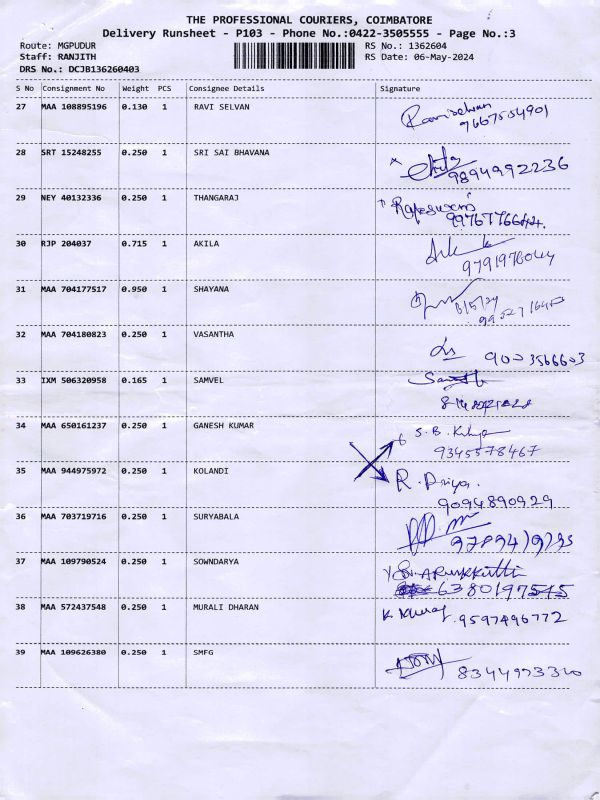 THE PROFESSIONAL COURIERS, COIMBATORE
Delivery Runsheet - P103 - Phone No.:0422-3505555 - Page No.:3
Route: MGPUDUR
RS No.: 1362604
Staff: RANJITH
RS Date: 06-May-2024
DRS No.: DCJB136260403
S No Consignment No Weight PCS Consignee Details Signature
27 MAA 108895196 0.130 1 RAVI SELVAN
28 SRT 15248255 0.250 1 SRI SAI BHAVANA
9894992236
29 NEY 40132336 0.250 1 THANGARAJ
30 RJP 204037 0.715 1 AKILA
31 MAA 704177517 0.950 1 SHAYANA
32 MAA 704180823 0.250 1 VASANTHA
9003566603
33 IXM 506320958 0.165 1 SAMVEL
34 MAA 650161237 0.250 1 GANESH KUMAR
S.B.
9345578467
35 MAA 944975972 0.250 1 KOLANDI
R. Priya.
9094890929
36 MAA 703719716 0.250 1 SURYABALA
37 MAA 109790524 0.250 1 SOWNDARYA
38 MAA 572437548 0.250 1 MURALI DHARAN
9597496772
39 MAA 109626380 0.250 1 SMFG